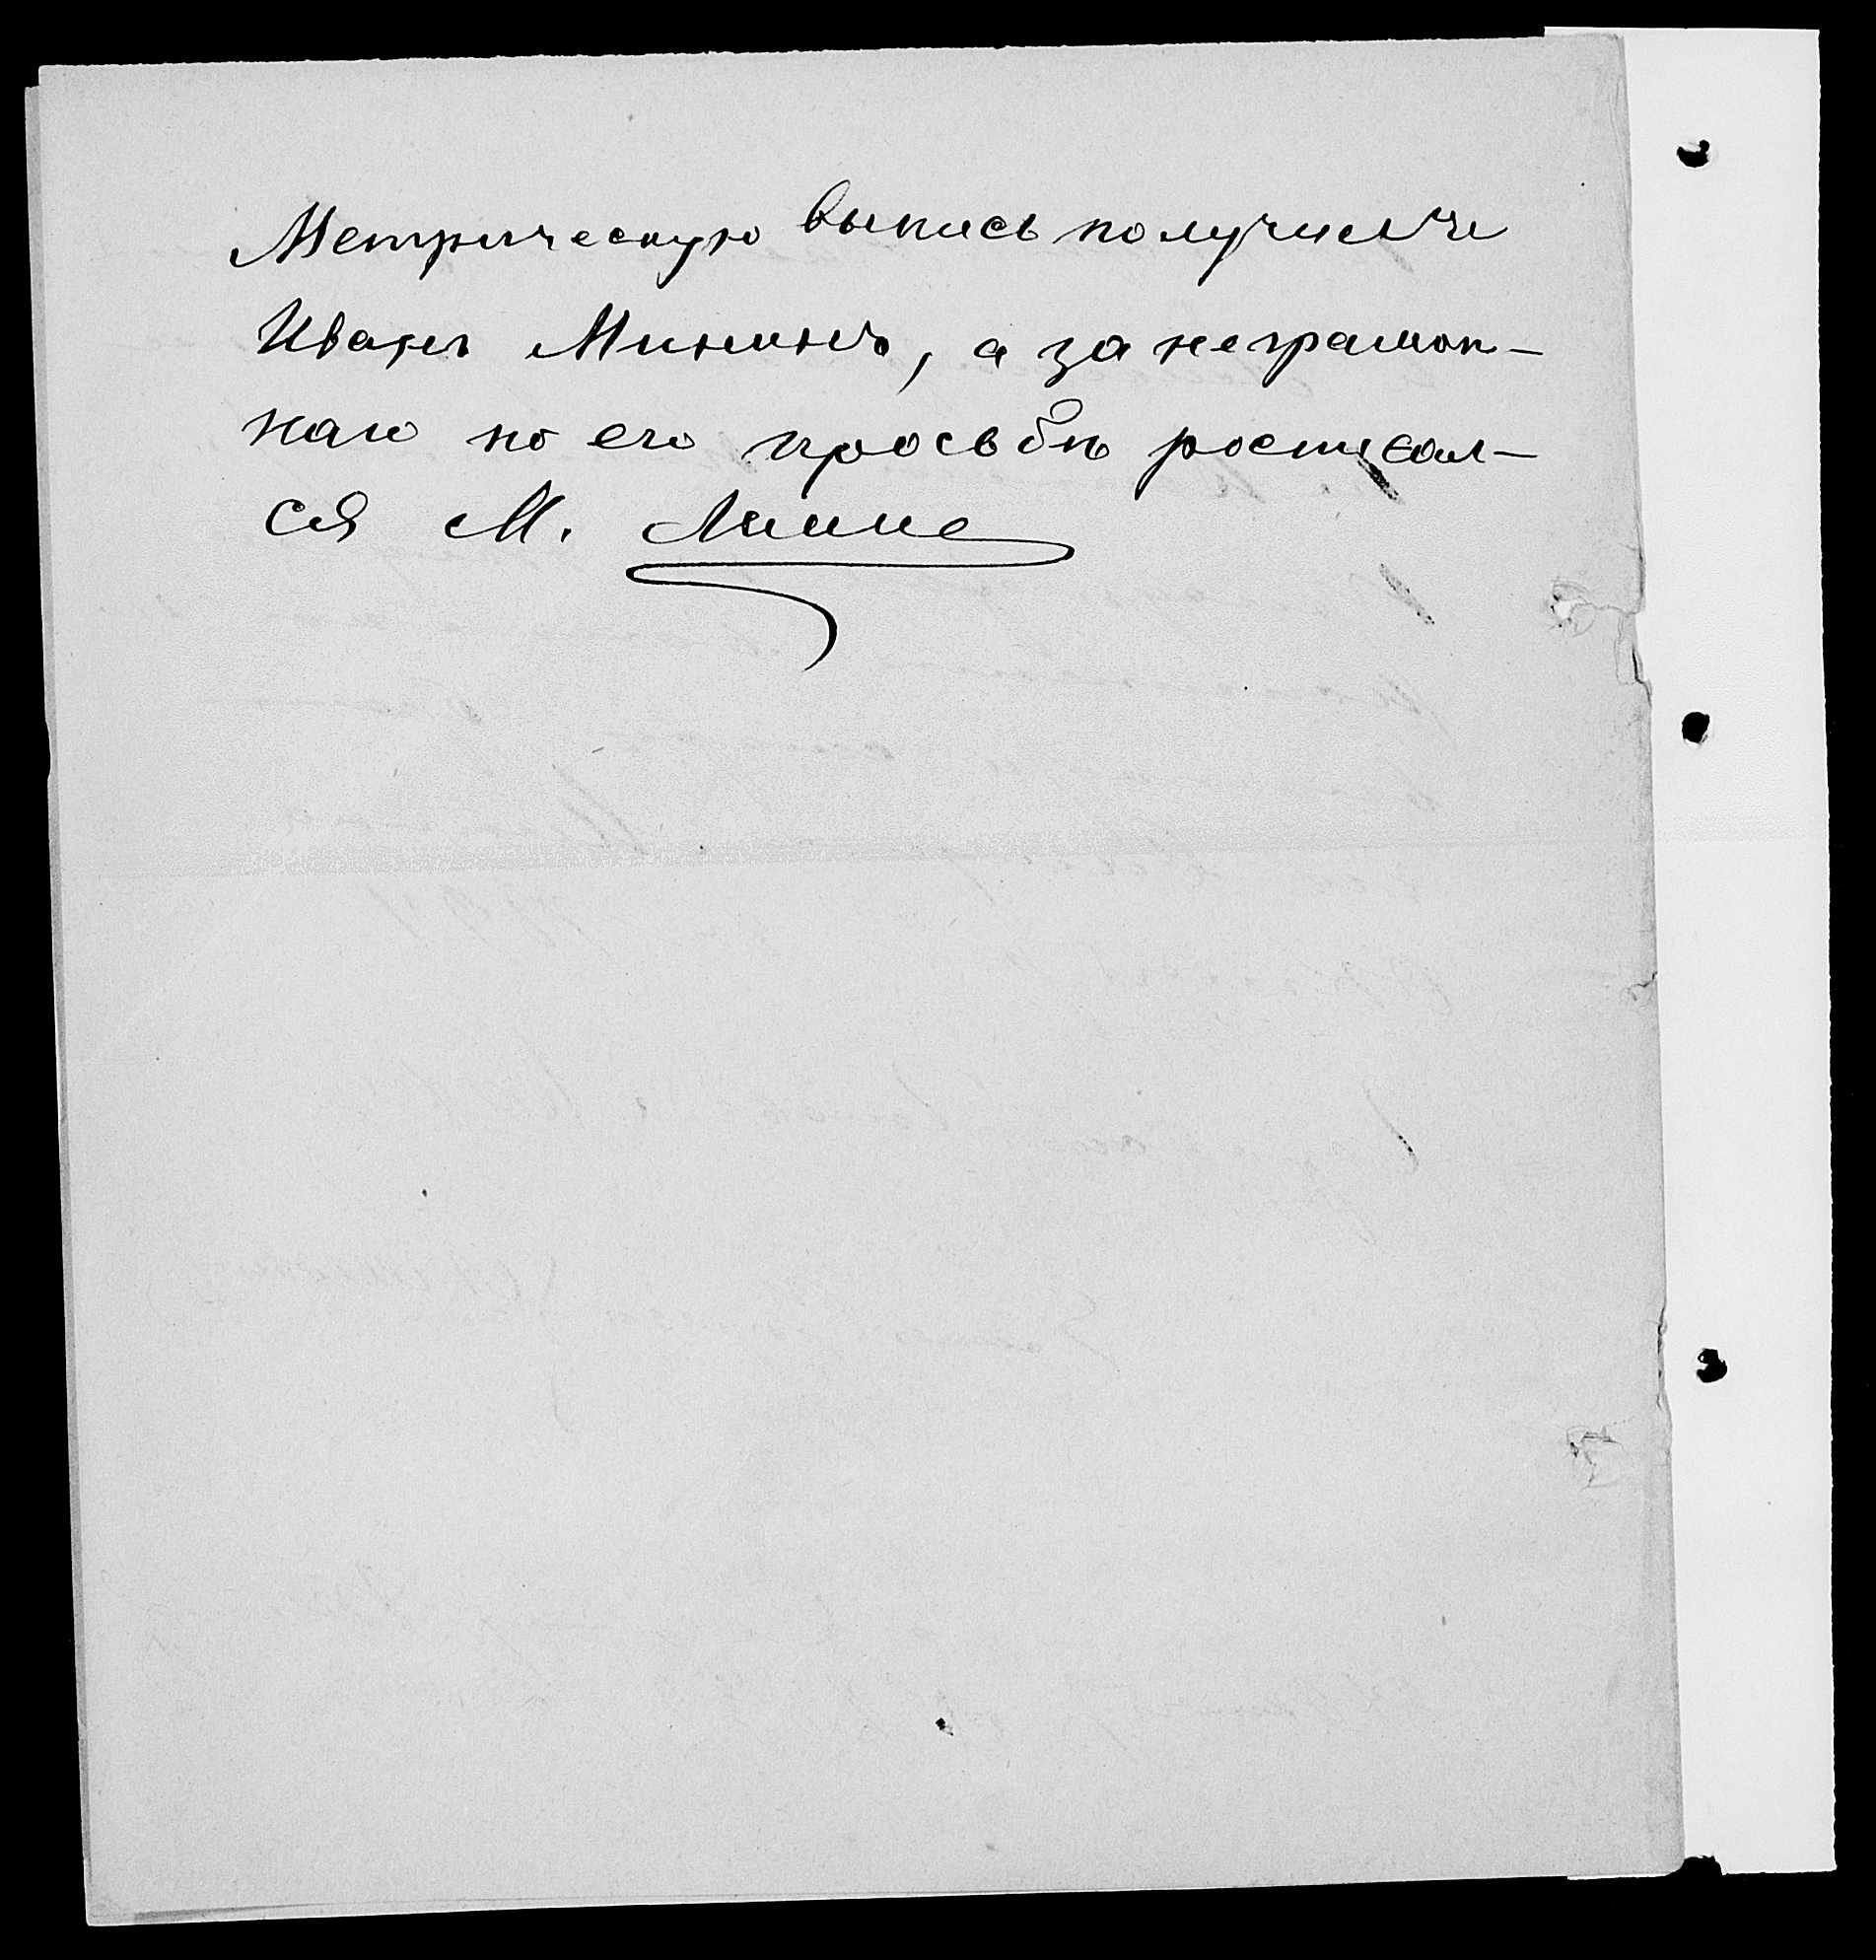 Метрическую выпись получилъ
Иванъ Мининъ, а за неграмот-
наго по его просьбѣ росписал-
ся М.